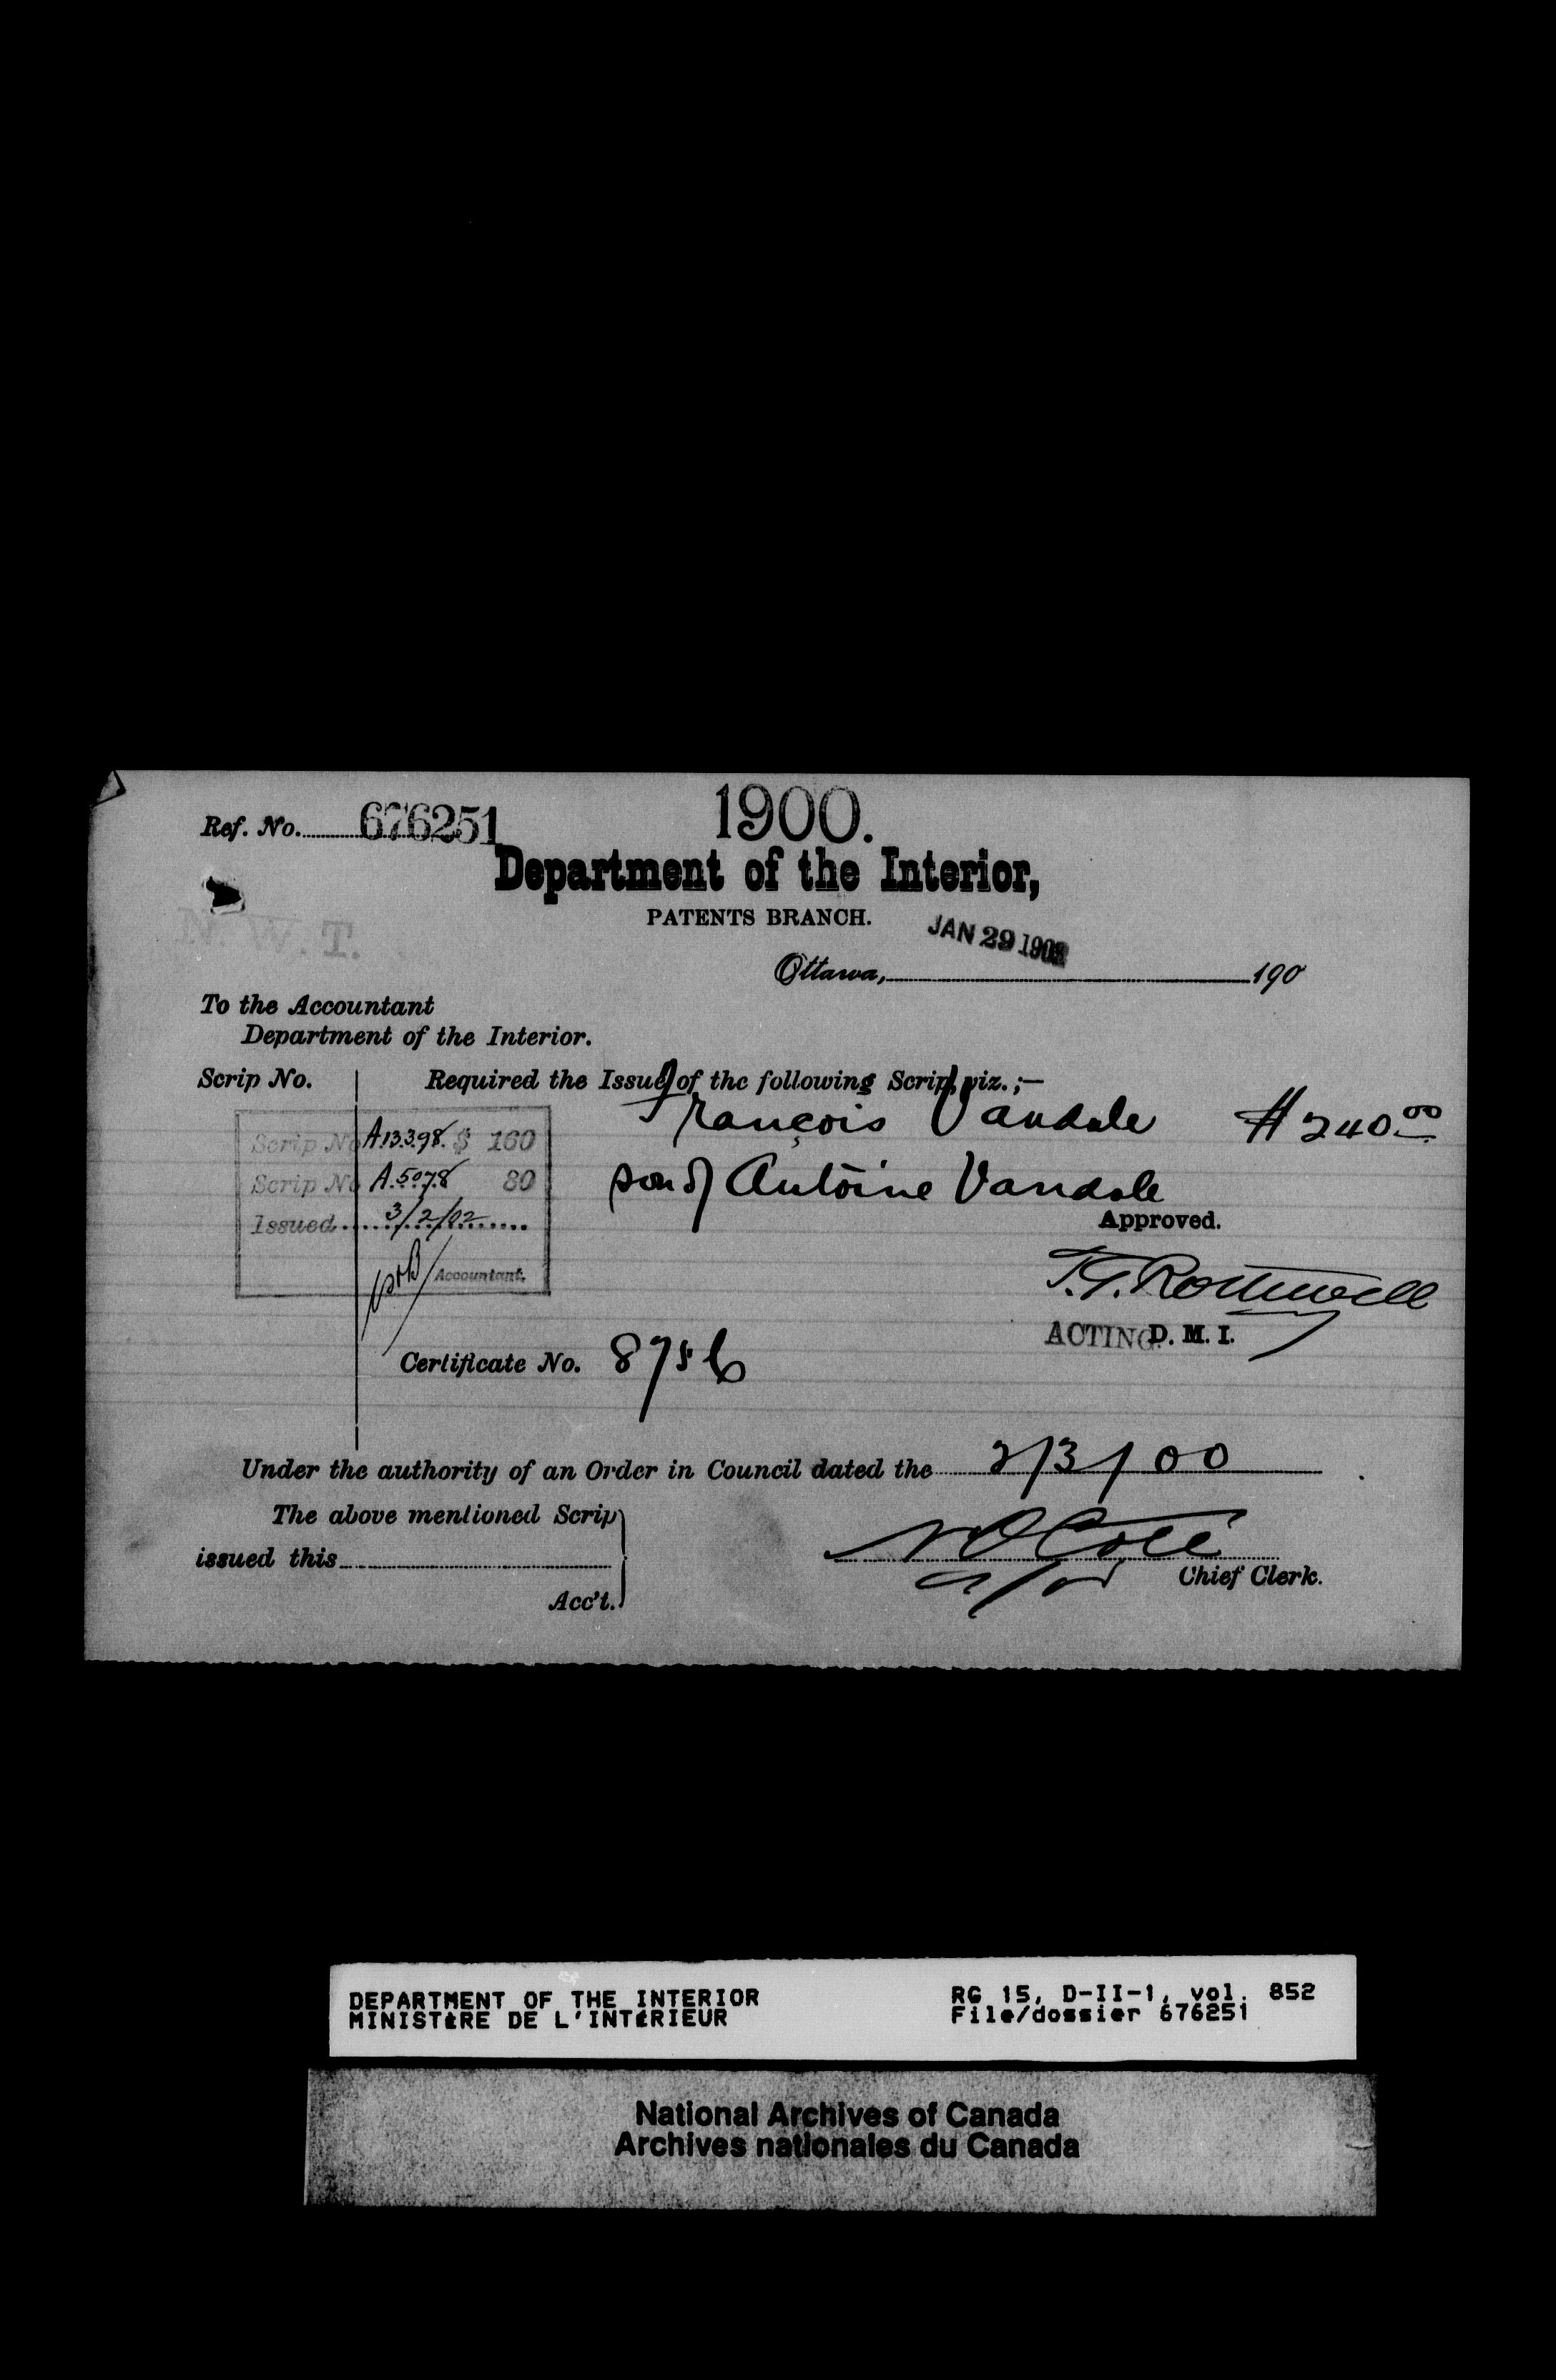 Ref. No. 676251
1900.
Department of the Interior,
PATENTS BRANCH.
N. W. T.
JAN 29 1902
Ottawa, 190
To the Accountant
Department of the Interior.
Scrip No. Required the Issue of the following Scrip, viz. ;—
François Vandale $240.00
Scrip No A.13398. $ 160
Scrip No A.5078 80
son of Antoine Vandale
Issued 3/2/02
Approved.
Accountant.
T.G. Rothwell
ACTING D. M. I.
Certificate No. 875 b
Under the authority of an Order in Council dated the 2/3/00
The above mentioned Scrip
issued this
N O Coté
Chief Clerk.
Acc't.
DEPARTMENT OF THE INTERIOR RG 15, D-II-1, vol. 852
MINISTÈRE DE L'INTÉRIEUR File/dossier 676251
National Archives of Canada
Archives nationales du Canada